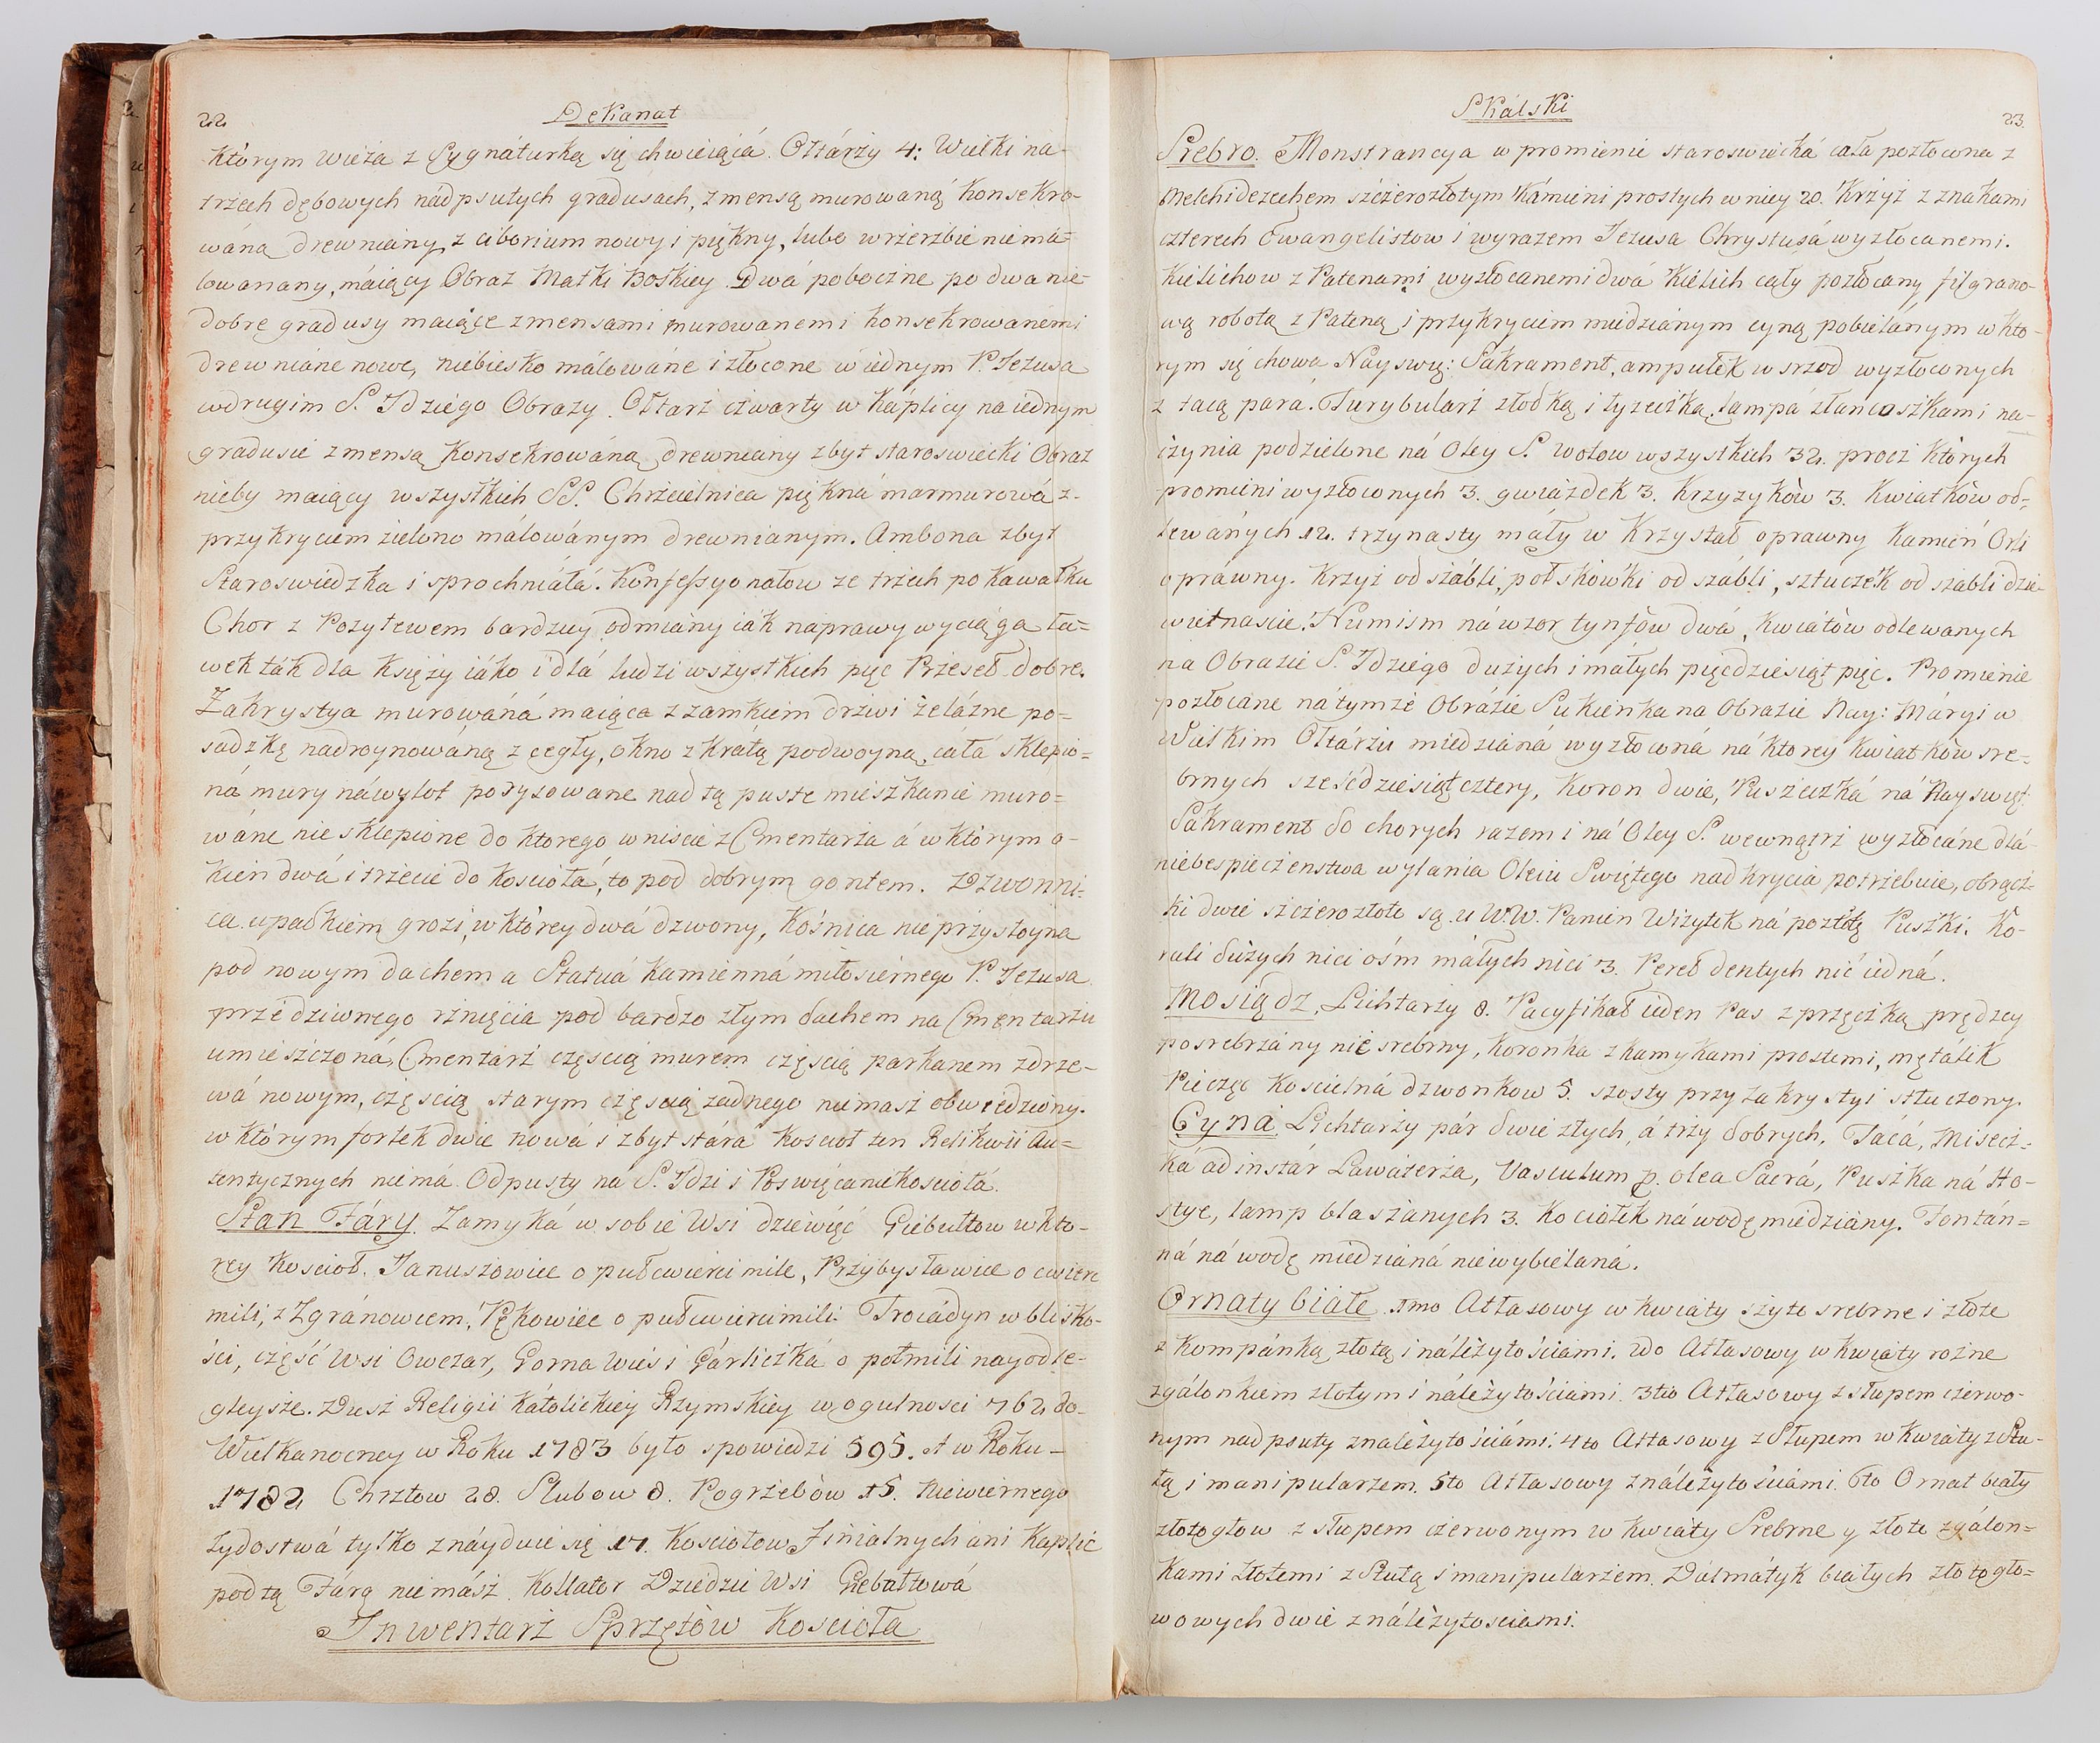 22
Dekanat
którym wieża z Sygnáturką się chwieiąca. Ołtárży 4: Wielki na-
trzech dębowych nádpsutych gradusach, z mensą murowaną konsekro-
waną drewniany, z ciborium nowy i piękny, lubo w rzezbie niemá-
lowanany, máiący Obraz Matki Boskiey. Dwá poboczne po dwa nie-
dobre gradusy maiące z mensami murowanemi konsekrowánemi
drewniáne nowe, niebiesko málowáne i złocone w iednym P. Jezusa
w drugim S. Jdziego Obrazy. Ołtarz czwarty w Kaplicy na iednym
gradusie z mensą Konsekrowáną drewniany zbyt staroswiecki Obraz
nieby maiący wszystkich SS. Chrzcielnica piękná marmurowá z-
przykryciem zielono málowánym drewnianym. Ambona zbyt
Staroswiedzka i sprochniáłá. Konfessyonałow ze trzech po kawałku
Chor z Pozytewem bardziey odmiány iák naprawy wyciąga ła-
wek ták dla Księży iáko i dlá ludzi wszystkich pięc Przeseł dobre.
Zakrystya murowáná maiąca z zamkiem drzwi żelázne po-
sadzkę nadroynowáną z cegły, okno z kratą podwoyną, cáłá sklepio-
ná mury náwylot porysowane nad tą puste mieszkanie muro-
wáne nie sklepione do ktorego wniscie z Cmentarża á w którym o-
kien dwá i trzecie do kościołá, to pod dobrym gontem. Dzwonni-
ca upadkiem grozi, w którey dwá dzwony, Kośnica nieprzystoyna
pod nowym dachem a Statuá kamienná miłosiernego P. Jezusa
przedziwnego rżnięcia pod bardzo złym dachem na Cmentarżu
umieszczoná, Cmentarż częścią murem częścią parkanem z drze-
wá nowym, częścią starym częścią żadnego niemasz obwiedziony.
w którym fortek dwie nowá i zbyt stára Kościoł ten Relikwii Au-
tentycznych niemá. Odpusty ná S. Jdzi i Poswięcanie kościołá.
Stan Fáry. Zamyká w sobie Wsi dziewięć Giebułtow w kto-
rey Kościoł. Januszowice o puł cwierci mile, Przybysławice o cwierc
mili, z Zgránowcem, Pękowice o puł cwierci mili. Trociádyn w blisko-
ści, część Wsi Owczar, Gorna Wieś i Gárliczká o połmili nayodle-
gleysze. Dusz Religii Kátolickiey Rzymskiey w ogulności 762 do-
Wielkanocney w Roku 1783 było spowiedzi 595. A w Roku-
1782 Chrztow 28. Slubow 8. Pogrzebów 15. Niewiernego
Zydostwá tylko znáyduie się 17. Kościołow Finialnych ani Kaplic
pod tą Fárą niemász. Kollator Dziedzic Wsi Giebałtowá
Jnwentarż Sprzętów Kościoła
Skálski
23.
Srebro. Monstrancya w promienie staroswiecká cała pozłocona z
Melchidezechem szczerozłotym Kámieni prostych w niey 20. Krżyż z znakami
czterech Ewangelistow i wyrazem Jezusa Chrystusá wyzłocanemi.
Kielichow z Patenami wyzłocanemi dwá Kielich cały pozłocany filgrano-
wą robotą z Pateną i przykryciem miedziánym cyną pobielánym w kto-
rym się chowa Nayswię: Sakrament, ampułek wsrzod wyzłoconych
z tacą pará. Turybularż z łodką i łyzeczką. lampá z łancuszkami na-
czynia podzielone ná Oley S. Wotow wszystkich 32. procz których
promieni wyzłoconych 3. gwiázdek 3. Krzyzyków 3. Kwiatków od-
lewáných 12. trzynasty mały w Krzyształ oprawny Kamień Orli
opráwny. Krżyż od sżábli, połskówki od szabli, sztuczek od sżabli dzie-
wietnascie. Numism ná wzor tynfów dwá, Kwiatów odlewanych
na Obrazie S. Jdziego dużych i máłych pięcdziesiąt pięc. Promienie
pozłocáne nátymże Obrázie Sukienka na Obrazie Nay: Máryi w
Wielkim Ołtárżu miedzianá wyzłoconá ná ktorey Kwiatków sre-
brnych sześćdziesiąt cztery, Koron dwie, Puszeczká ná Nayswięt:
Sakrament do chorych razem i ná Oley S. wewnątrż wyzłocáne dlá-
niebespieczenstwa wylania Oleiu Swiętego nadkrycia potrzebuie, obrącz-
ki dwie szczerozłote są u W.W. Panien Wizytek ná pozłotę Puszki. Ko-
rali dużych nici ośm małych nici 3. Pereł dentych nić iedná.
Mosiądz. Lichtarży 8. Pacyfikał ieden Pas z przęczką prędzey
posrebrzány nie srebrny, Koronka z kamykami prostemi, mętálik
Pieczęc Koscielná dzwonkow 5. szosty przy zakrystyi stłuczony.
Cyná. Lichtarży pár dwie złych, á trży dobrych, Tacá, Misecz-
ká ad instár Lawáterża, Vasculum p. olea Sacrá, Puszka ná Ho-
stye, lamp blaszánych 3. Kociołek ná wodę miedziány. Fontán-
ná ná wodę miedzianá niewybielaná.
Ornaty białe 1mo Atłasowy w kwiáty szyte srebrne i złote
z Kompánką złotą i náleżytościami. 2do Atłasowy w kwiáty rożne
z gálonkiem złotym i náleżytościámi. 3tio Atłasowy z słupem czerwo-
nym nadpsuty z należytościámi. 4to Atłasowy z Słupem w kwiáty z Stu-
łą i manipularzem. 5to Atłasowy z náleżytościámi. 6to Ornat biały
złotogłow z słupem czerwonym w kwiáty Srebrne y złote z gálon-
kami złotemi z Stułą i manipularżem. Dálmátyk białych złotogło-
wowych dwie z náleżytosciami.